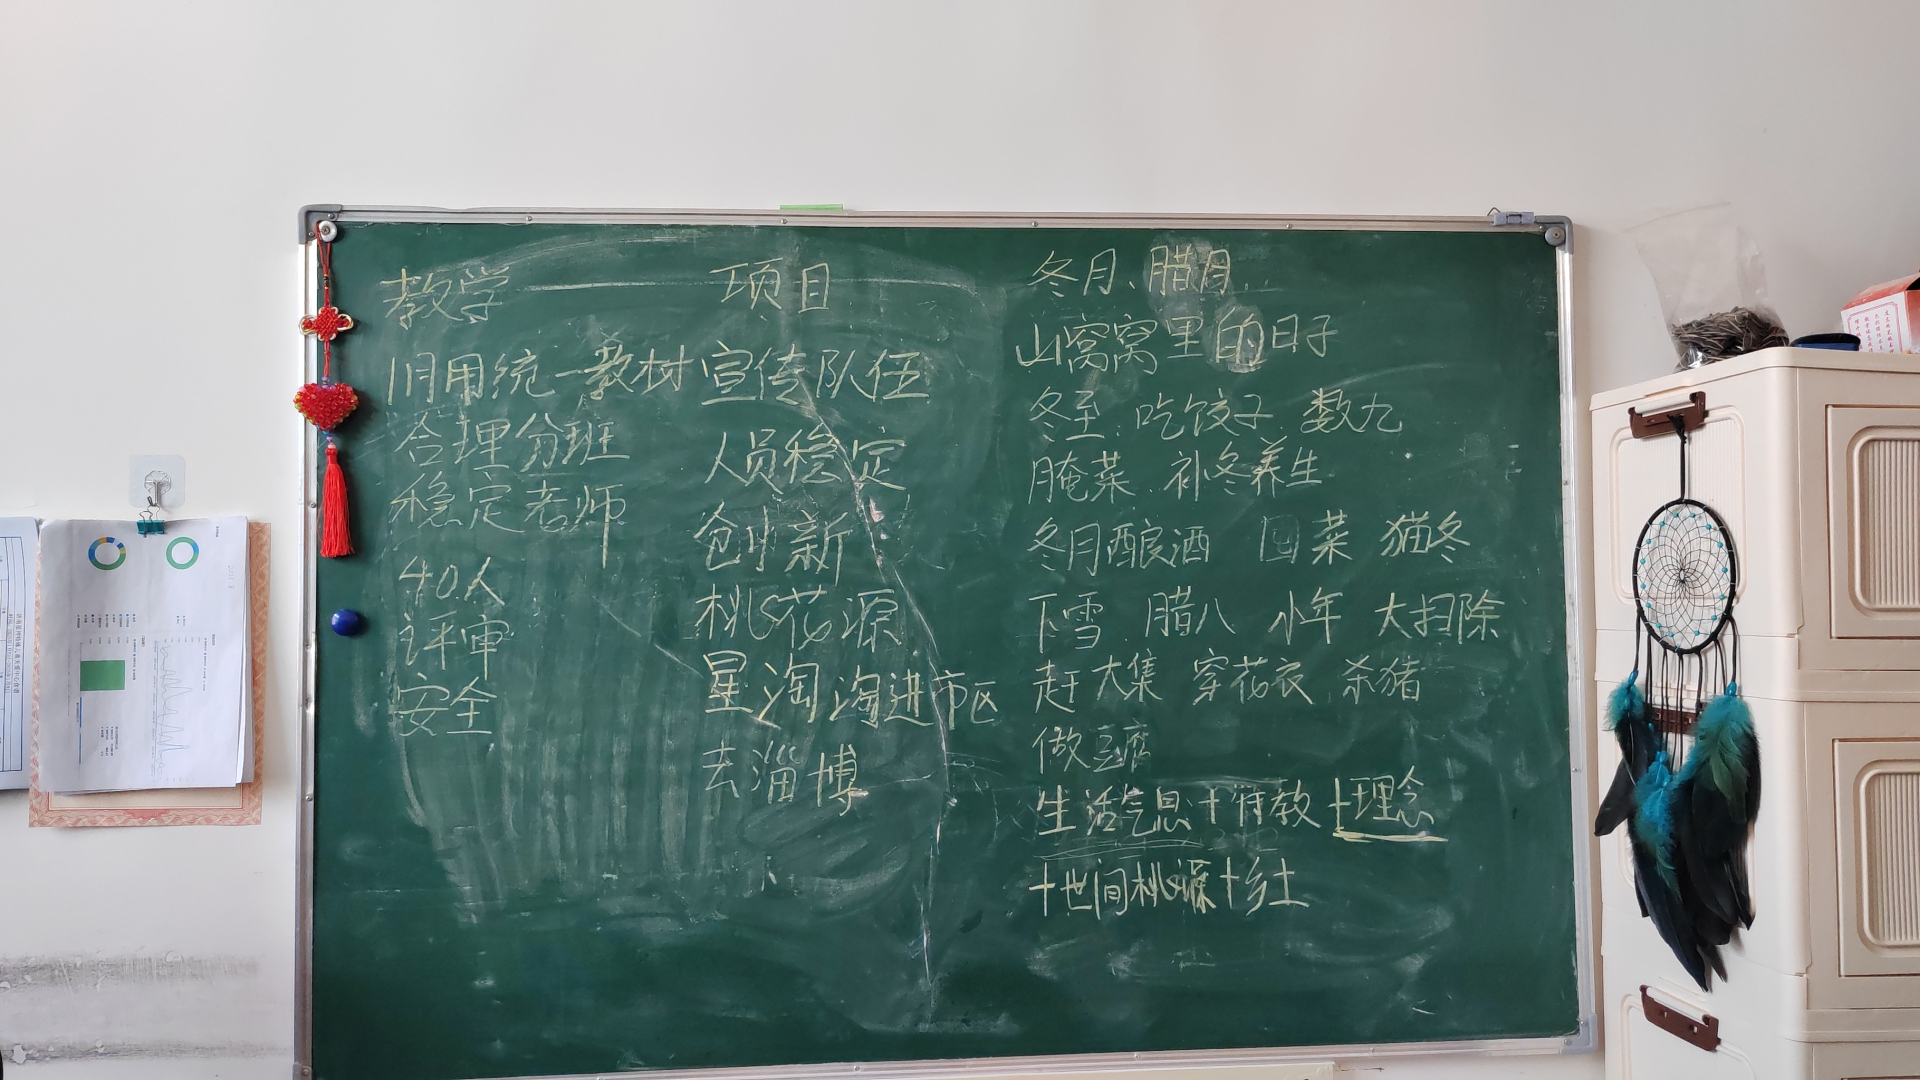 教学
旧用统一教材
合理分班
稳定老师
40人
评审
安全
项目
宣传队伍
人员稳定
创新
桃花源
星淘淘进市区
去淄博
冬月、腊月
山窝窝里的日子
冬至、吃饺子 数九
腌菜、补冬养生
冬月酿酒 囤菜 猫冬
下雪、腊八 小年 大扫除
赶大集 穿花衣 杀猪
做豆腐
生活气息+特教+理念
+世间桃源+乡土